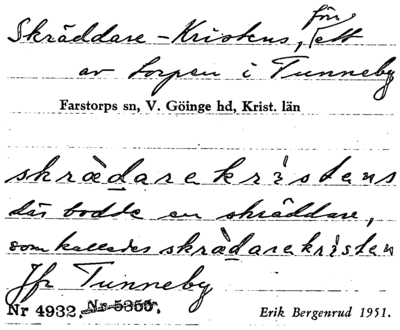 Skräddare-Kristens, förr ett
av torpen i Tunneby
Farstorps sn, V. Göinge hd, Krist. län
skrädarekristens
där bodde en skräddare,
som kallades skrädarekristen
Jfr Tunneby
Nr 4932. Nr 5355.
Erik Bergenrud 1951.